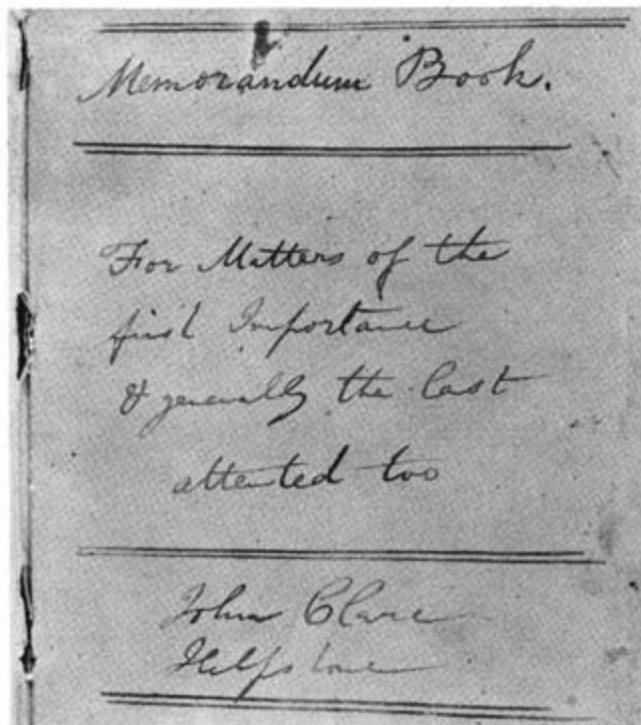 Memorandum Book.
For Matters of the
first Importance
& generally the last
attented too
John Clare
Helpstone